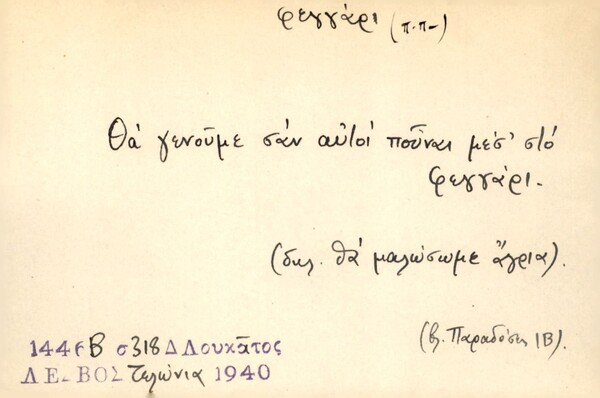 φεγγάρι (π.π-)
Θά γενοῦμε σάν αὐτοί ποὖναι μέσ' στό
φεγγάρι.
(δηλ. θά μαλώσωμε ἄγρια).
(βλ. Παραδόσεις ΙΒ).
1446Β σ318 Δ Λουκᾶτος
ΛΕ-ΒΟΣ Τελώνια 1940